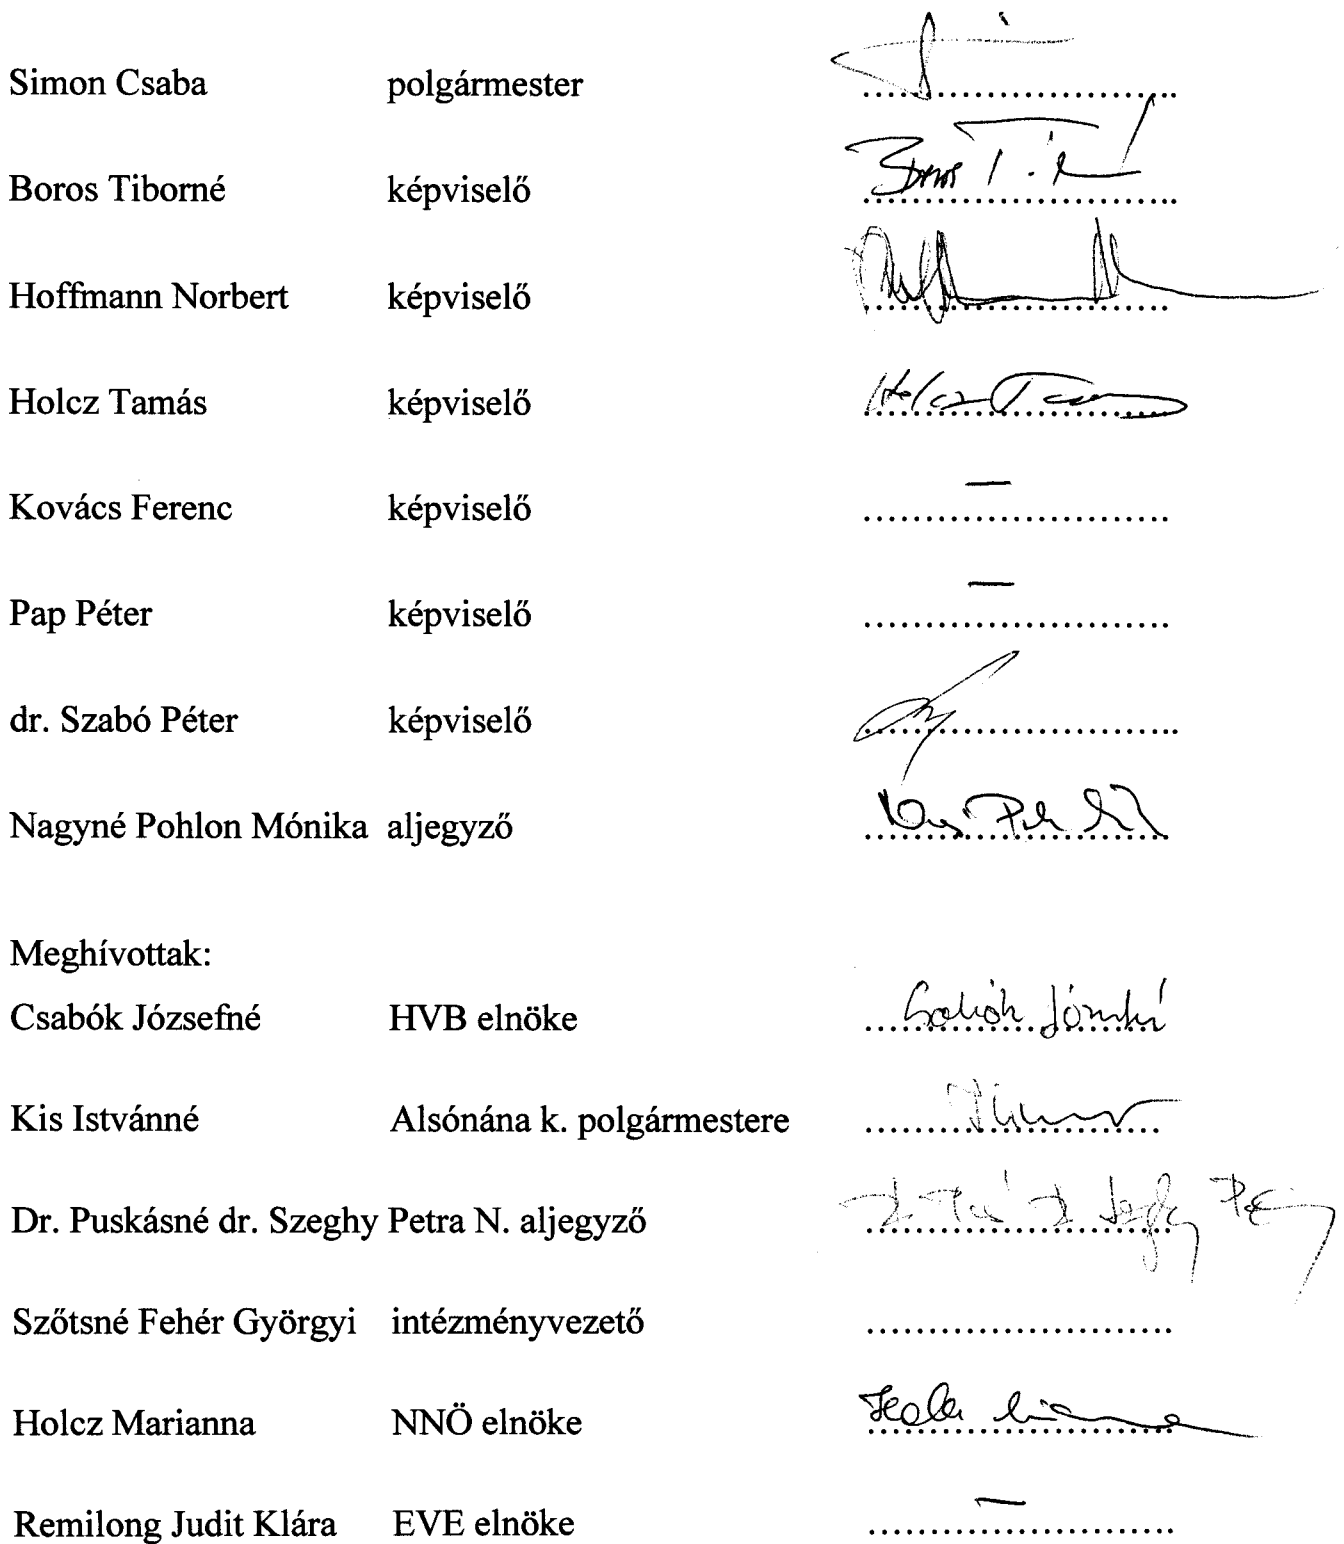 Simon Csaba polgármester ........................
Boros Tiborné képviselő Boros T. ........................
Hoffmann Norbert képviselő ........................
Holcz Tamás képviselő Holcz Tamás ........................
Kovács Ferenc képviselő — ........................
Pap Péter képviselő — ........................
dr. Szabó Péter képviselő ........................
Nagyné Pohlon Mónika aljegyző ........................
Meghívottak:
Csabók Józsefné HVB elnöke Csabók Józsefné ........................
Kis Istvánné Alsónána k. polgármestere ........................
Dr. Puskásné dr. Szeghy Petra N. aljegyző ........................
Szőtsné Fehér Györgyi intézményvezető ........................
Holcz Marianna NNÖ elnöke ........................
Remilong Judit Klára EVE elnöke — ........................